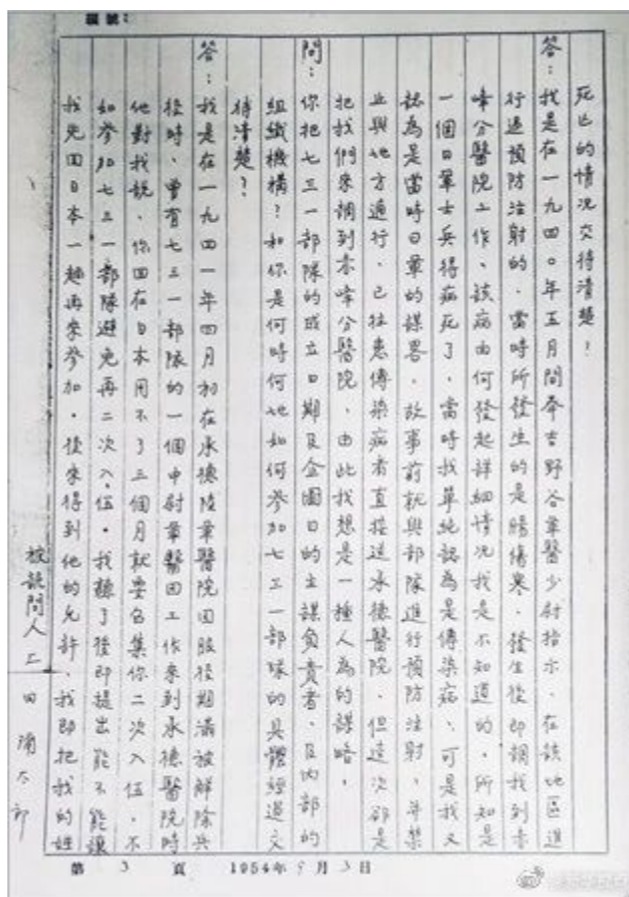 編號：
死亡的情況交待清楚？
答：我是在一九四〇年五月間奉吉野谷軍醫少尉指示、在該地區進
行過預防注射的．當時所發生的是腸傷寒．發生後即調我到赤
峰分醫院工作、該病由何發起詳細情況我是不知道的．所知是
一個日軍士兵得病死了．當時我單純認為是傳染病、可是我又
認為是當時日軍的謀畧．故事前就與部隊進行預防注射、并禁
止與地方通行．已往患傳染病者直接送承德醫院．但這次卻是
把我們來調到赤峰分醫院、由此我想是一種人為的謀略．
問：你把七三一部隊的成立日期及企圖目的主謀負責者、及內部的
組織機構？和你是何時何地如何參加七三一部隊的具體經過交
待清楚？
答：我是在一九四一年四月初在承德陸軍醫院因服役期滿被解除兵
役時、曾有七三一部隊的一個中尉軍醫因工作來到承德醫院時
他對我說．你回在日本用不了三個月就要召集你二次入伍．不
如參加七三一部隊避免再二次入伍．我聽了後即提出能不能讓
我先回日本一趟再來參加．後來得到他的允許．我即把我的姓
被訊問人 田浦太郎
第 3 頁 1954年9月3日